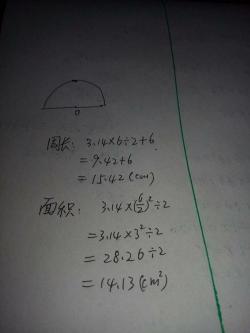 O
周长: 3.14×6÷2+6
=9.42+6
=15.42(cm)
面积: 3.14×(6/2)²÷2
=3.14×3²÷2
=28.26÷2
=14.13(cm²)